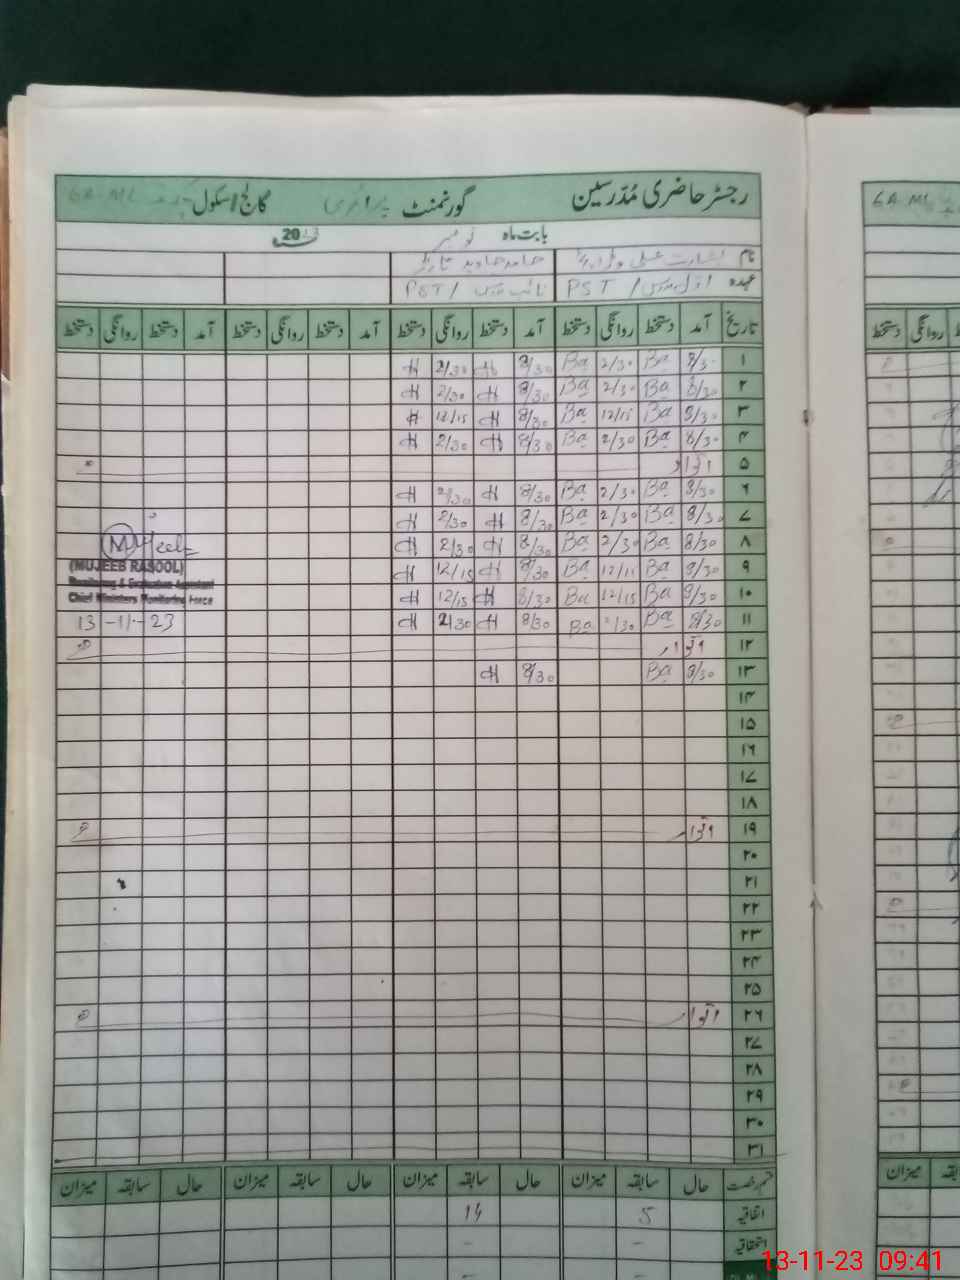 رجسٹر حاضری مُدّرسین گورنمنٹ پرائمری کالج/سکول
بابت ماہ نومبر 2023
نام بشارت علی حامد جاوید
عہدہ اول مدرس / PST نائب مدرس / PST
تاریخ آمد دستخط روانگی دستخط آمد دستخط روانگی دستخط آمد دستخط روانگی دستخط آمد دستخط روانگی دستخط
۱ 8/30 Ba 2/30 Ba 8/30 H 2/30 H
۲ 8/30 Ba 2/30 Ba 8/30 H 2/30 H
۳ 8/30 Ba 12/15 Ba 8/30 H 12/15 H
۴ 8/30 Ba 2/30 Ba 8/30 H 2/30 H
۵ اتوار
۶ 8/30 Ba 2/30 Ba 8/30 H 2/30 H
۷ 8/30 Ba 2/30 Ba 8/30 H 2/30 H
۸ 8/30 Ba 2/30 Ba 8/30 H 2/30 H
Mujeeb
(MUJEEB RASOOL)
Monitoring & Evaluation Assistant
Chief Ministers Monitoring Force
13-11-23
۹ 8/30 Ba 12/15 Ba 8/30 H 12/15 H
۱۰ 8/30 Ba 12/15 Ba 8/30 H 12/15 H
۱۱ 8/30 Ba 2/30 Ba 8/30 H 2/30 H
۱۲ اتوار
۱۳ 8/30 Ba 8/30 H
۱۴
۱۵
۱۶
۱۷
۱۸
۱۹ اتوار
۲۰
۲۱
۲۲
۲۳
۲۴
۲۵
۲۶ اتوار
۲۷
۲۸
۲۹
۳۰
۳۱
قسم رخصت حال سابقہ میزان حال سابقہ میزان حال سابقہ میزان حال سابقہ میزان
اتفاقیہ 5 14
استحقاقیہ - -
13-11-23 09:41